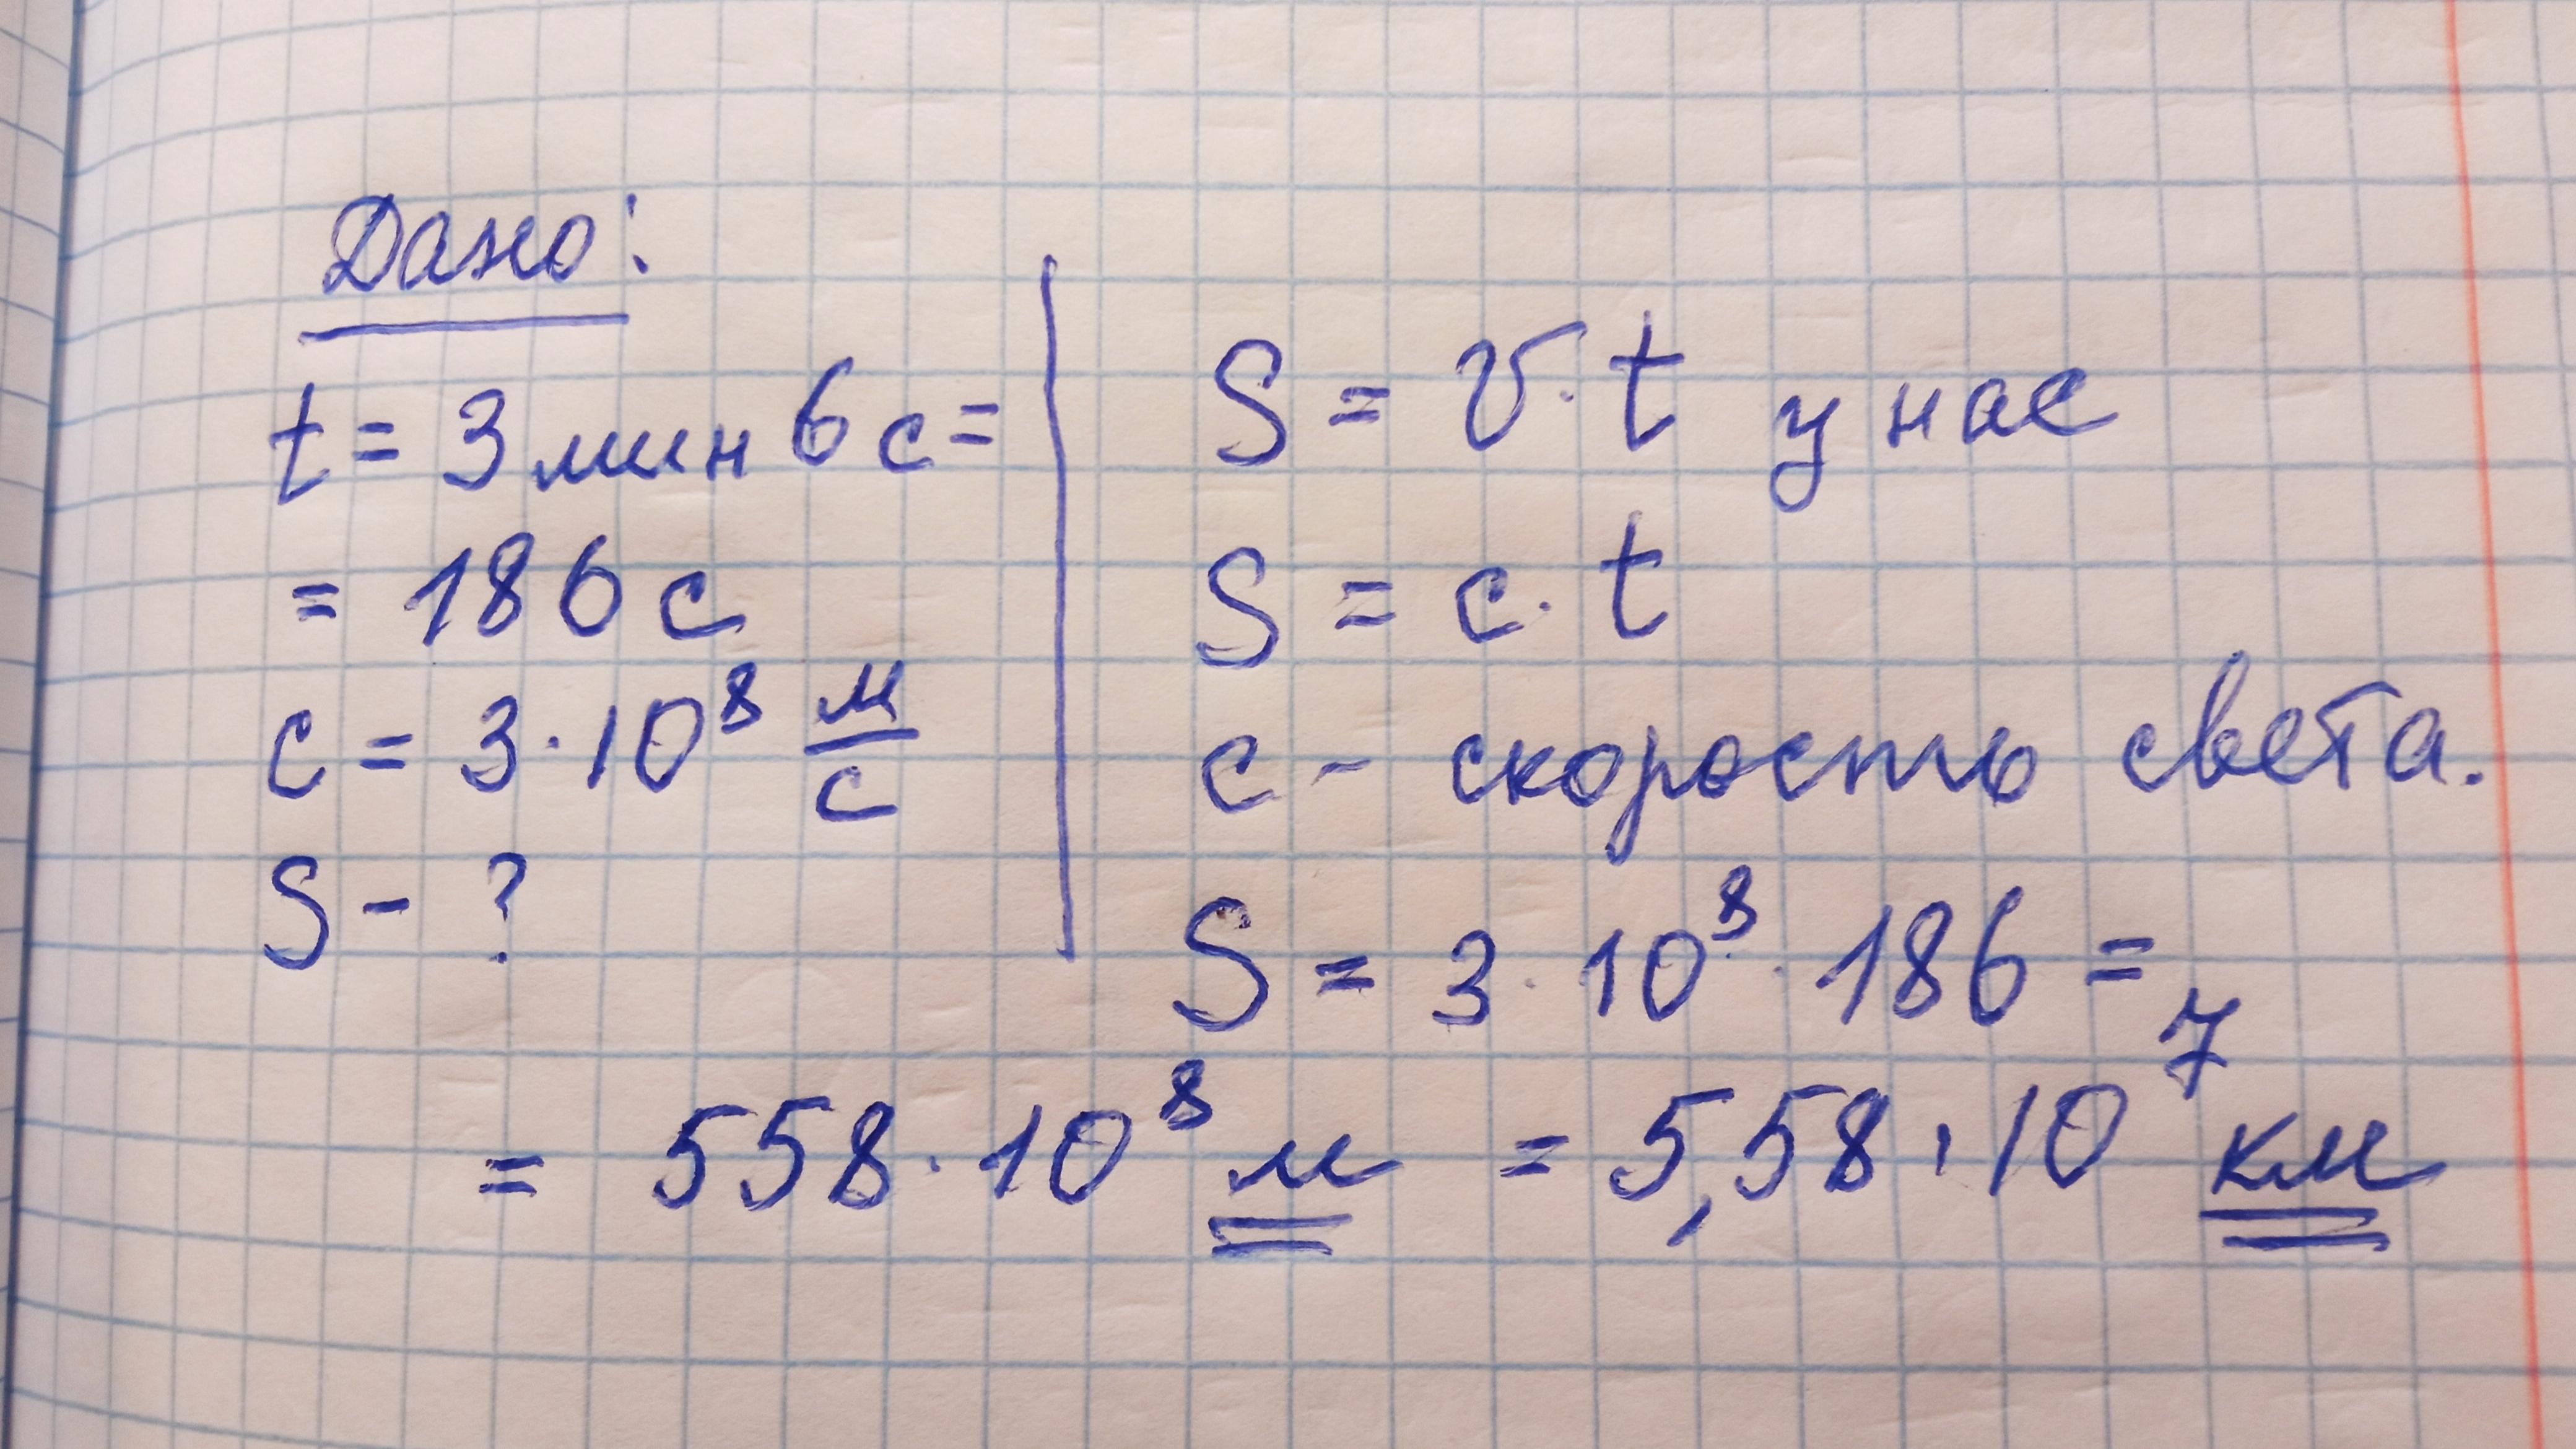 Дано:
t = 3 мин 6 с =
= 186 с
c = 3 · 10⁸ м/с
S - ?
S = v · t у нас
S = c · t
c - скорость света.
S = 3 · 10⁸ · 186 =
= 558 · 10⁸ м = 5,58 · 10⁷ км